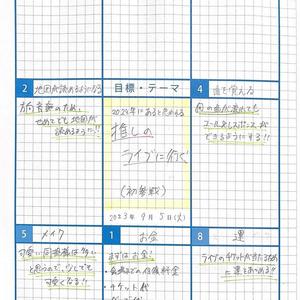 2 地図が読めるようになる
方向音痴のため、
せめてでも地図が
読めるように!!
目標・テーマ
2024年にあると思われる
推しの
ライブに行く
(初参戦)
2023年 9月 5日(火)
4 曲を覚える
何の曲が流れても
コール&レスポンスが
できるようにする!!
5 メイク
可愛い同担様は多い
と思うので、少しでも
可愛くなる!!
1 お金
まずはお金!
・会場までの往復料金
・チケット代
8 運
ライブのチケットが当たるため
運をためる!!